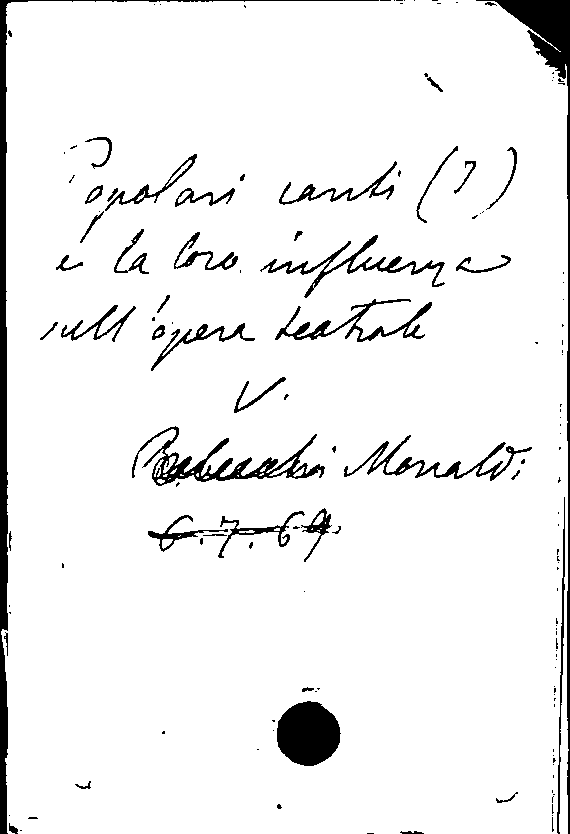 Popolari canti (?)
e la loro influenza
sull'opera teatrale
V.
Monaldi
6.7.69